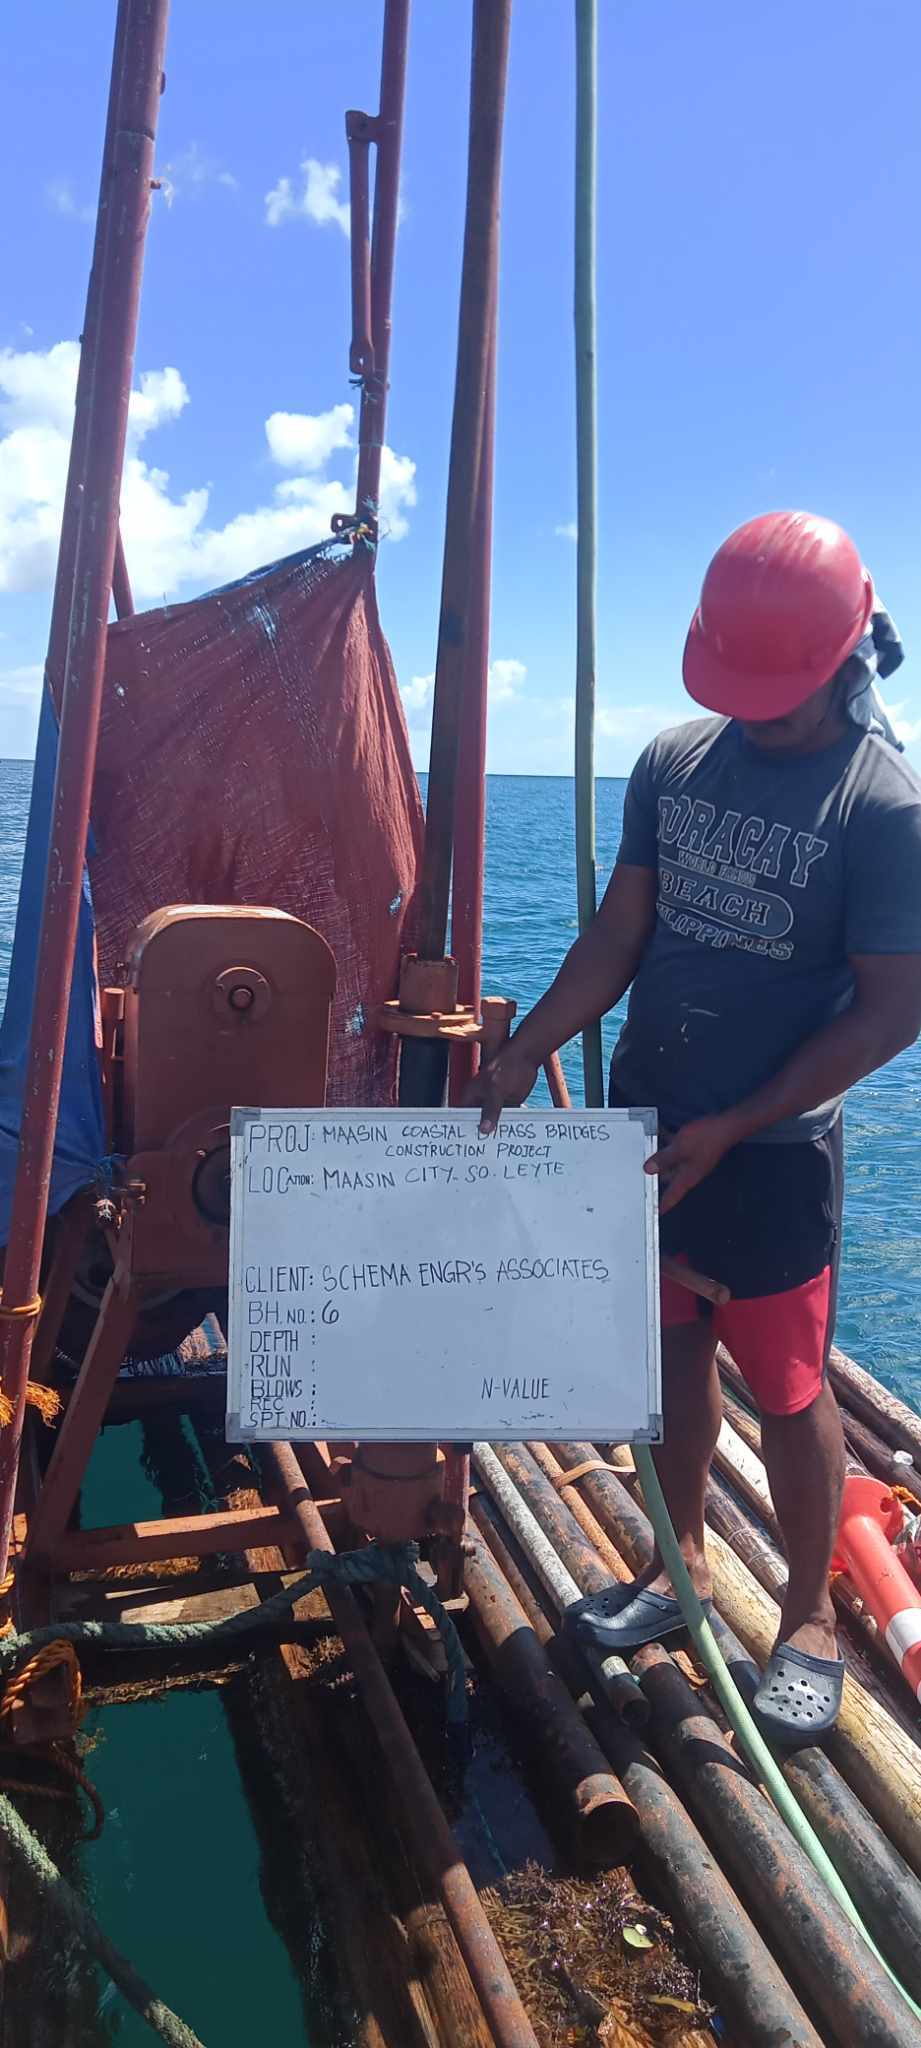 BORACAY
WORLD FAMOUS
BEACH
PHILIPPINES
PROJ: MAASIN COASTAL BYPASS BRIDGES
CONSTRUCTION PROJECT
LOCATION: MAASIN CITY. SO. LEYTE
CLIENT: SCHEMA ENGR'S ASSOCIATES
BH. NO.: 6
DEPTH :
RUN :
BLOWS : N-VALUE
REC :
SPT NO.: